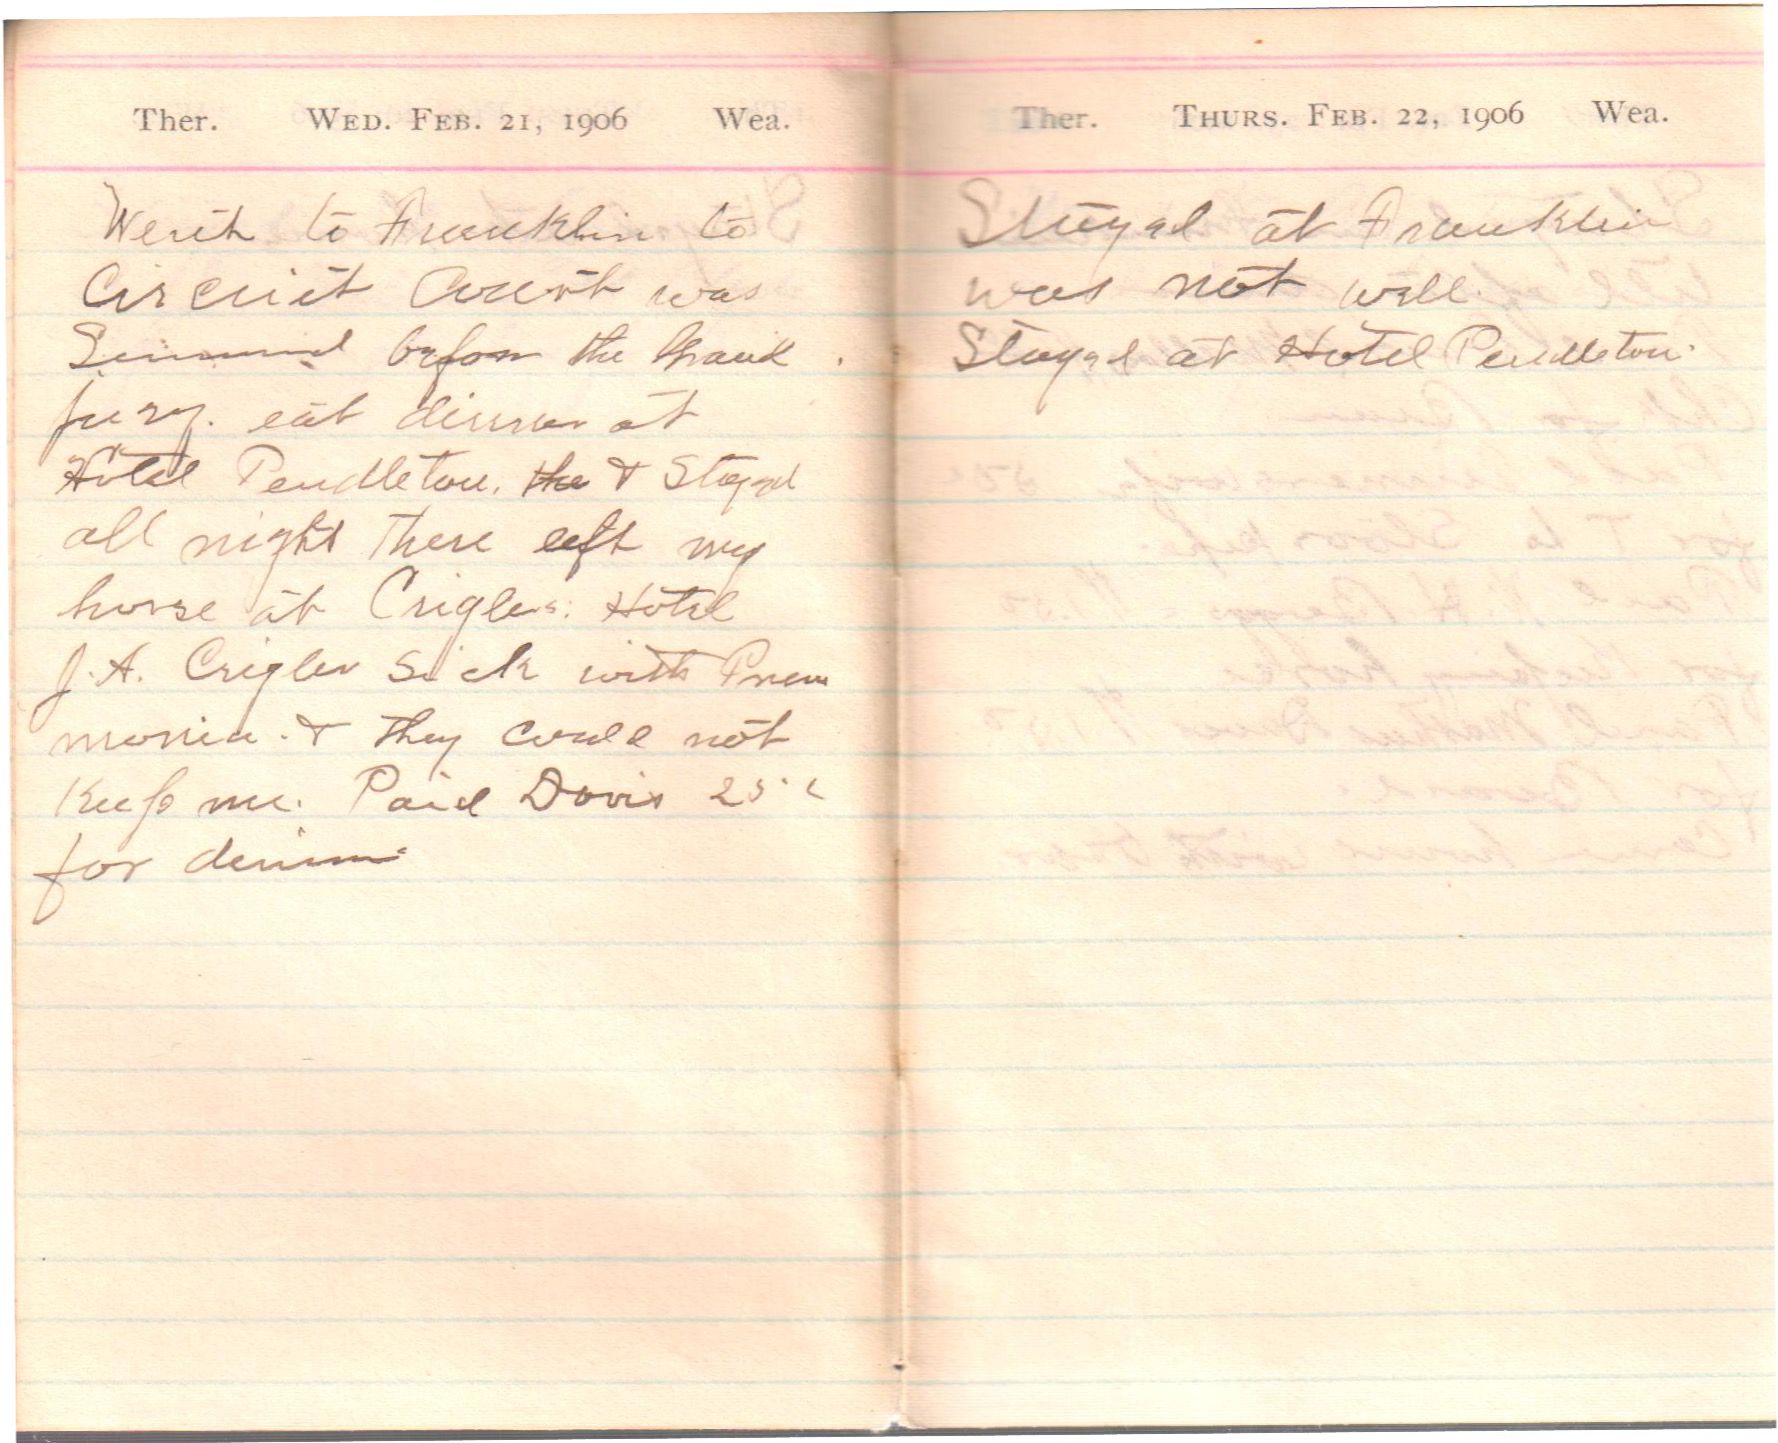 Ther. WED. FEB. 21, 1906 Wea.
Went to Franklin to
Circuit Court was
before the
jury. eat dinner at
Hotel Pendleton. the & Stayed
all night there left my
horse at Criglers. Hotel
J. A. Crigler Sick with Pneu
monia. & they could not
Keep me. Paid Davis 25 c
for
Ther. THURS. FEB. 22, 1906 Wea.
Stayed at Franklin
was not well.
Stayed at Hotel Pendleton.